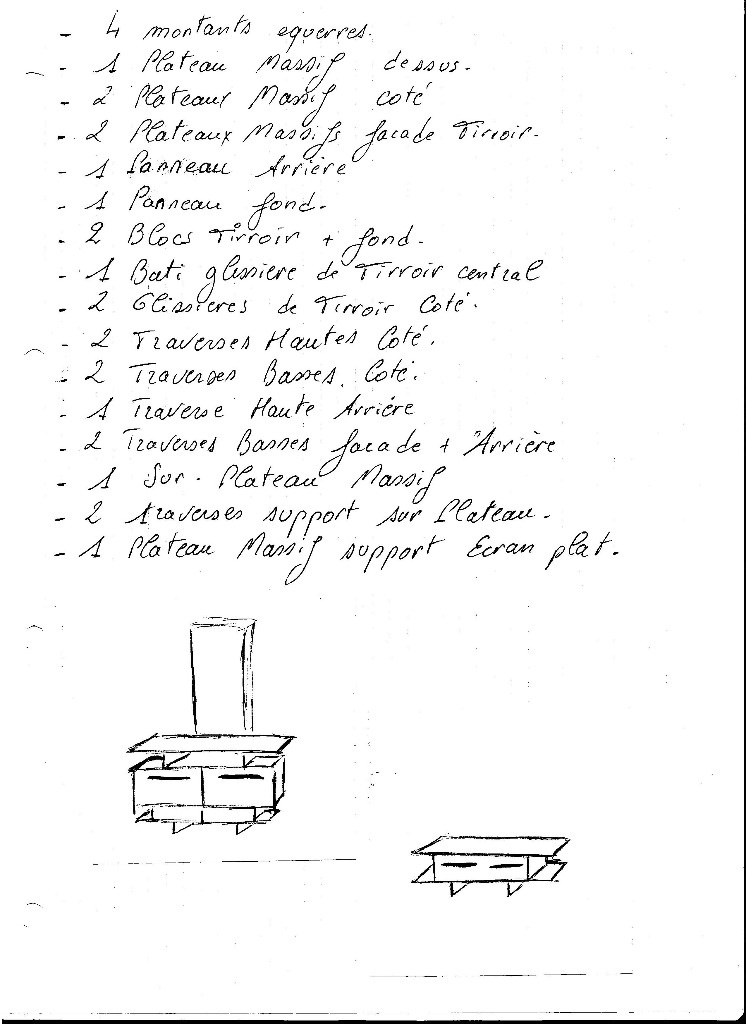 - 4 montants equerres.
- 1 Plateau Massif dessus.
- 2 Plateaux Massif coté
- 2 Plateaux Massifs facade Tirroir.
- 1 Panneau Arrière
- 1 Panneau fond.
- 2 Blocs Tirroir + fond.
- 1 Bati glissiere de Tirroir central
- 2 Glissieres de Tirroir Coté.
- 2 Traverses Hautes Coté.
- 2 Traverses Basses Coté.
- 1 Traverse Haute Arriére
- 2 Traverses Basses facade + Arrière
- 1 Sur-Plateau Massif
- 2 traverses support sur Plateau.
- 1 Plateau Massif support Ecran plat.